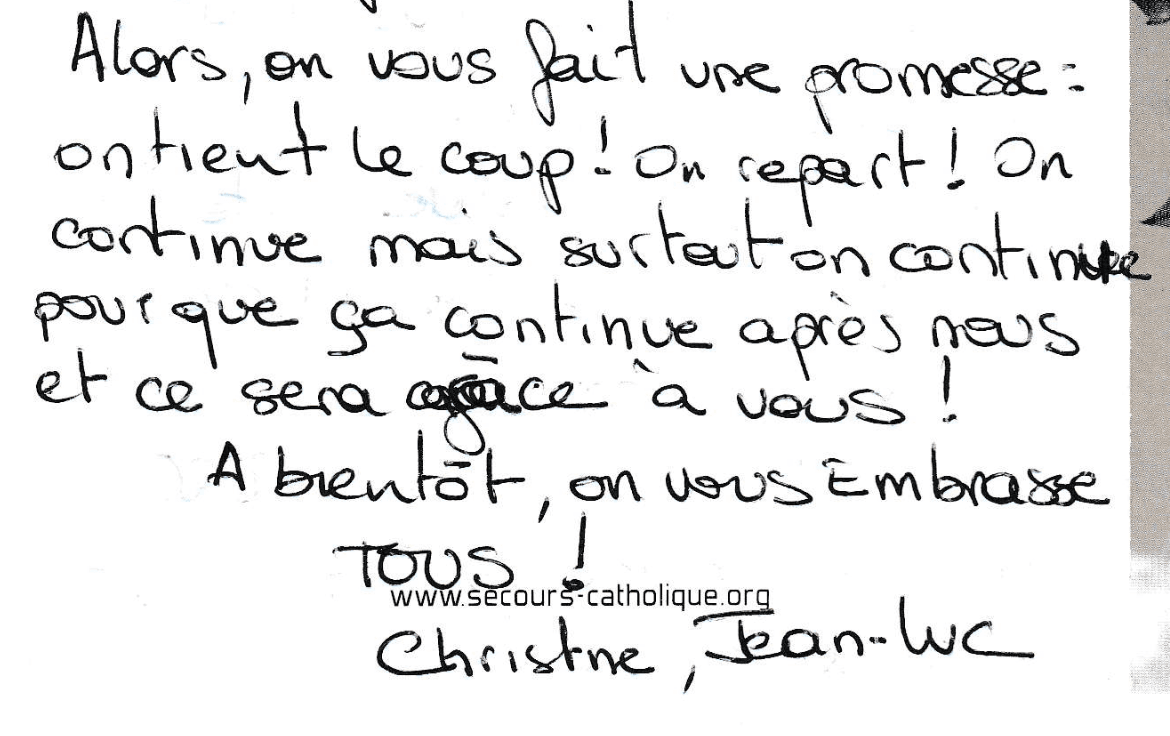 Alors, on vous fait une promesse :
on tient le coup ! On repart ! On
continue mais surtout on continue
pour que ça continue après nous
et ce sera grâce à vous !
A bientôt, on vous Embrasse
TOUS !
www.secours-catholique.org
Christine, Jean-Luc